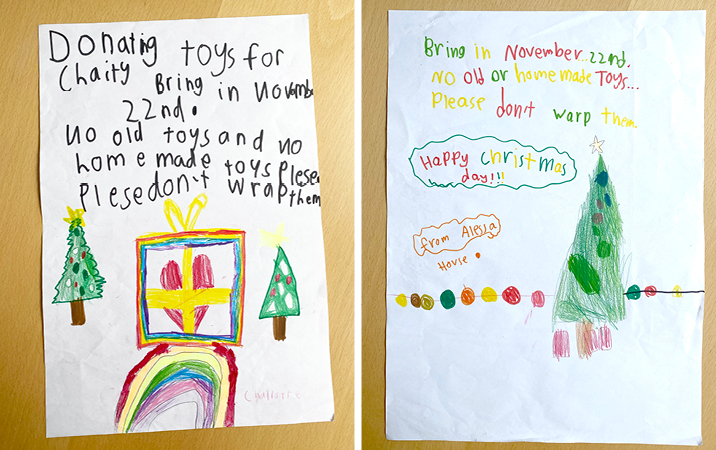 Donating toys for
Chaity Bring in Novembe
22nd.
No old toys and no
home made toys Plese
Plese don't wrap them
Bring in November...22nd.
No old or home made Toys...
Please don't warp them.
Happy christmas
day!!!
from Alessa
House.